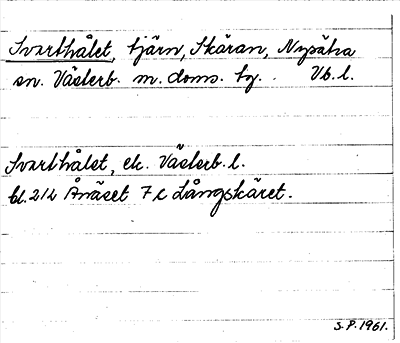 Svarthålet, tjärn, Skäran, Nysätra
sn. Västerb. m. doms. tg. . Vb. l.
Svarthålet, ek. Västerb. l.
bl. 212 Ånäset 7 c Långskäret.
S.P. 1961.